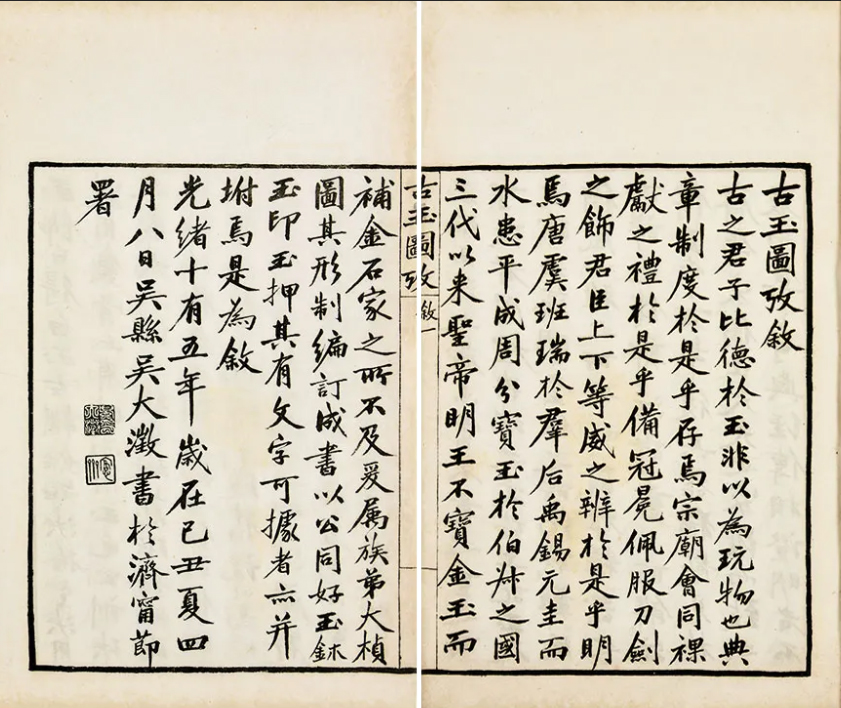 古玉圖攷敘
古之君子比德於玉非以為玩物也典
章制度於是乎存焉宗廟會同祼
獻之禮於是乎備冠冕佩服刀劍
之飾君臣上下等威之辨於是乎明
焉唐虞班瑞於羣后禹錫元圭而
水患平成周分寶玉於伯叔之國
三代以来聖帝明王不寶金玉而
古玉圖攷 敘 一
補金石家之所不及爰属族弟大楨
圖其形制編訂成書以公同好玉鉥
玉印玉押其有文字可據者亦并
坿焉是為敘
光緒十有五年歲在己丑夏四
月八日吳縣吳大澂書於濟甯節
署